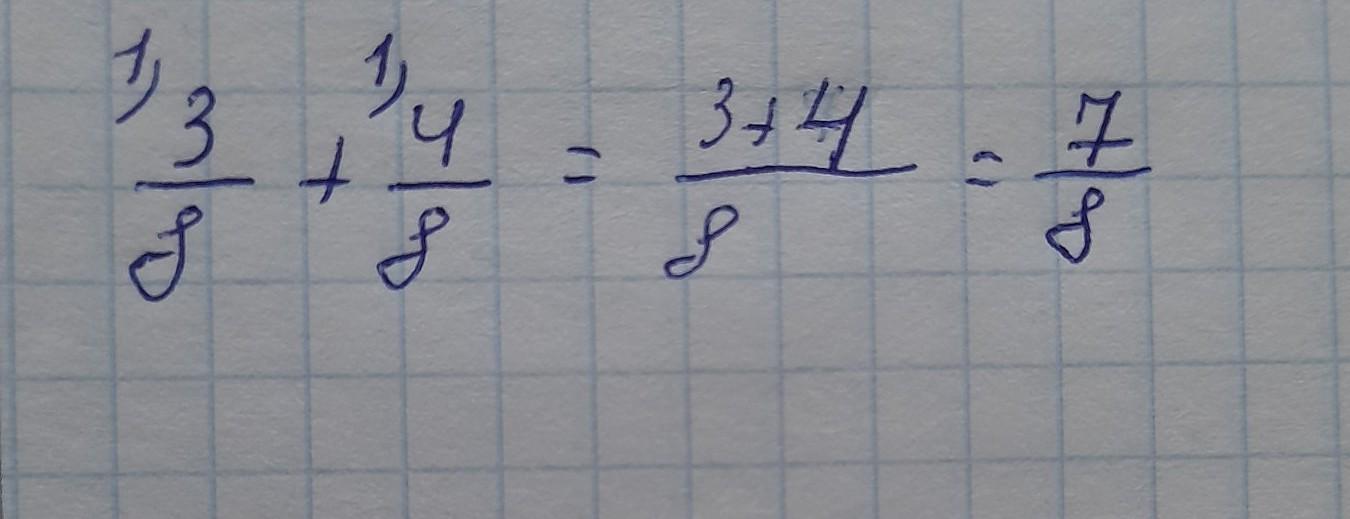 1) 3/8 + 1) 4/8 = 3+4/8 = 7/8